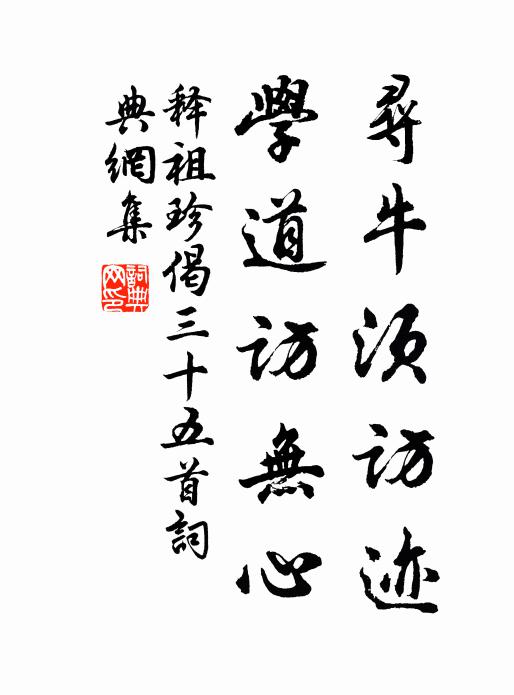 尋牛須訪迹
學道訪無心
释祖珍偈三十五首詞
典網集
詞典
网印